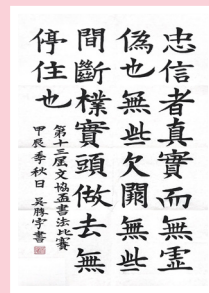 忠信者真實而無虛
偽也無些欠闕無些
間斷樸實頭做去無
停住也
第十三屆文協盃書法比賽
甲辰季秋日 吳勝宇書